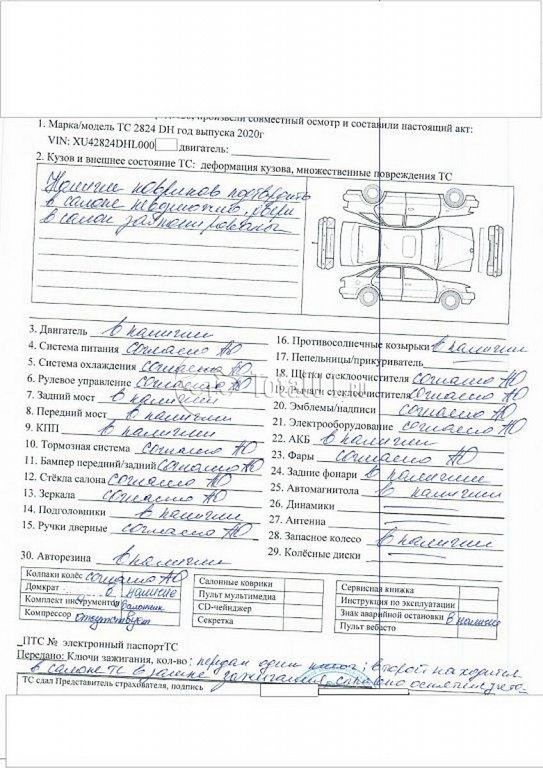 произвели совместный осмотр и составили настоящий акт:
1. Марка/модель ТС 2824 DH год выпуска 2020г
VIN: XU42824DHL000 двигатель:
2. Кузов и внешнее состояние ТС: деформация кузова, множественные повреждения ТС
Наличие ковриков подтвердить
в салоне невозможно, двери
в салон заблокированы
3. Двигатель в наличии
4. Система питания согласно АО
5. Система охлаждения согласно АО
6. Рулевое управление согласно АО
7. Задний мост в наличии
8. Передний мост в наличии
9. КПП в наличии
10. Тормозная система согласно АО
11. Бампер передний/задний согласно АО
12. Стёкла салона согласно АО
13. Зеркала согласно АО
14. Подголовники в наличии
15. Ручки дверные согласно АО
16. Противосолнечные козырьки в наличии
17. Пепельницы/прикуриватель
18. Щётки стеклоочистителя согласно АО
стеклоочистителя согласно АО
20. Эмблемы/надписи согласно АО
21. Электрооборудование согласно АО
22. АКБ в наличии
23. Фары согласно АО
24. Задние фонари в наличии
25. Автомагнитола в наличии
26. Динамики
27. Антенна
28. Запасное колесо в наличии
29. Колёсные диски
30. Авторезина в наличии
Колпаки колёс согласно АО
Домкрат в наличие
Комплект инструментов балонник
Компрессор отсутствует
Салонные коврики
Пульт мультимедиа
CD-чейнджер
Секретка
Сервисная книжка
Инструкция по эксплуатации
Знак аварийной остановки в наличие
Пульт вебасто
_ПТС № электронный паспортТС
Передано: Ключи зажигания, кол-во: передан один ключ; второй находится
в салоне ТС в замке зажигания,
ТС сдал Представитель страхователя, подпись